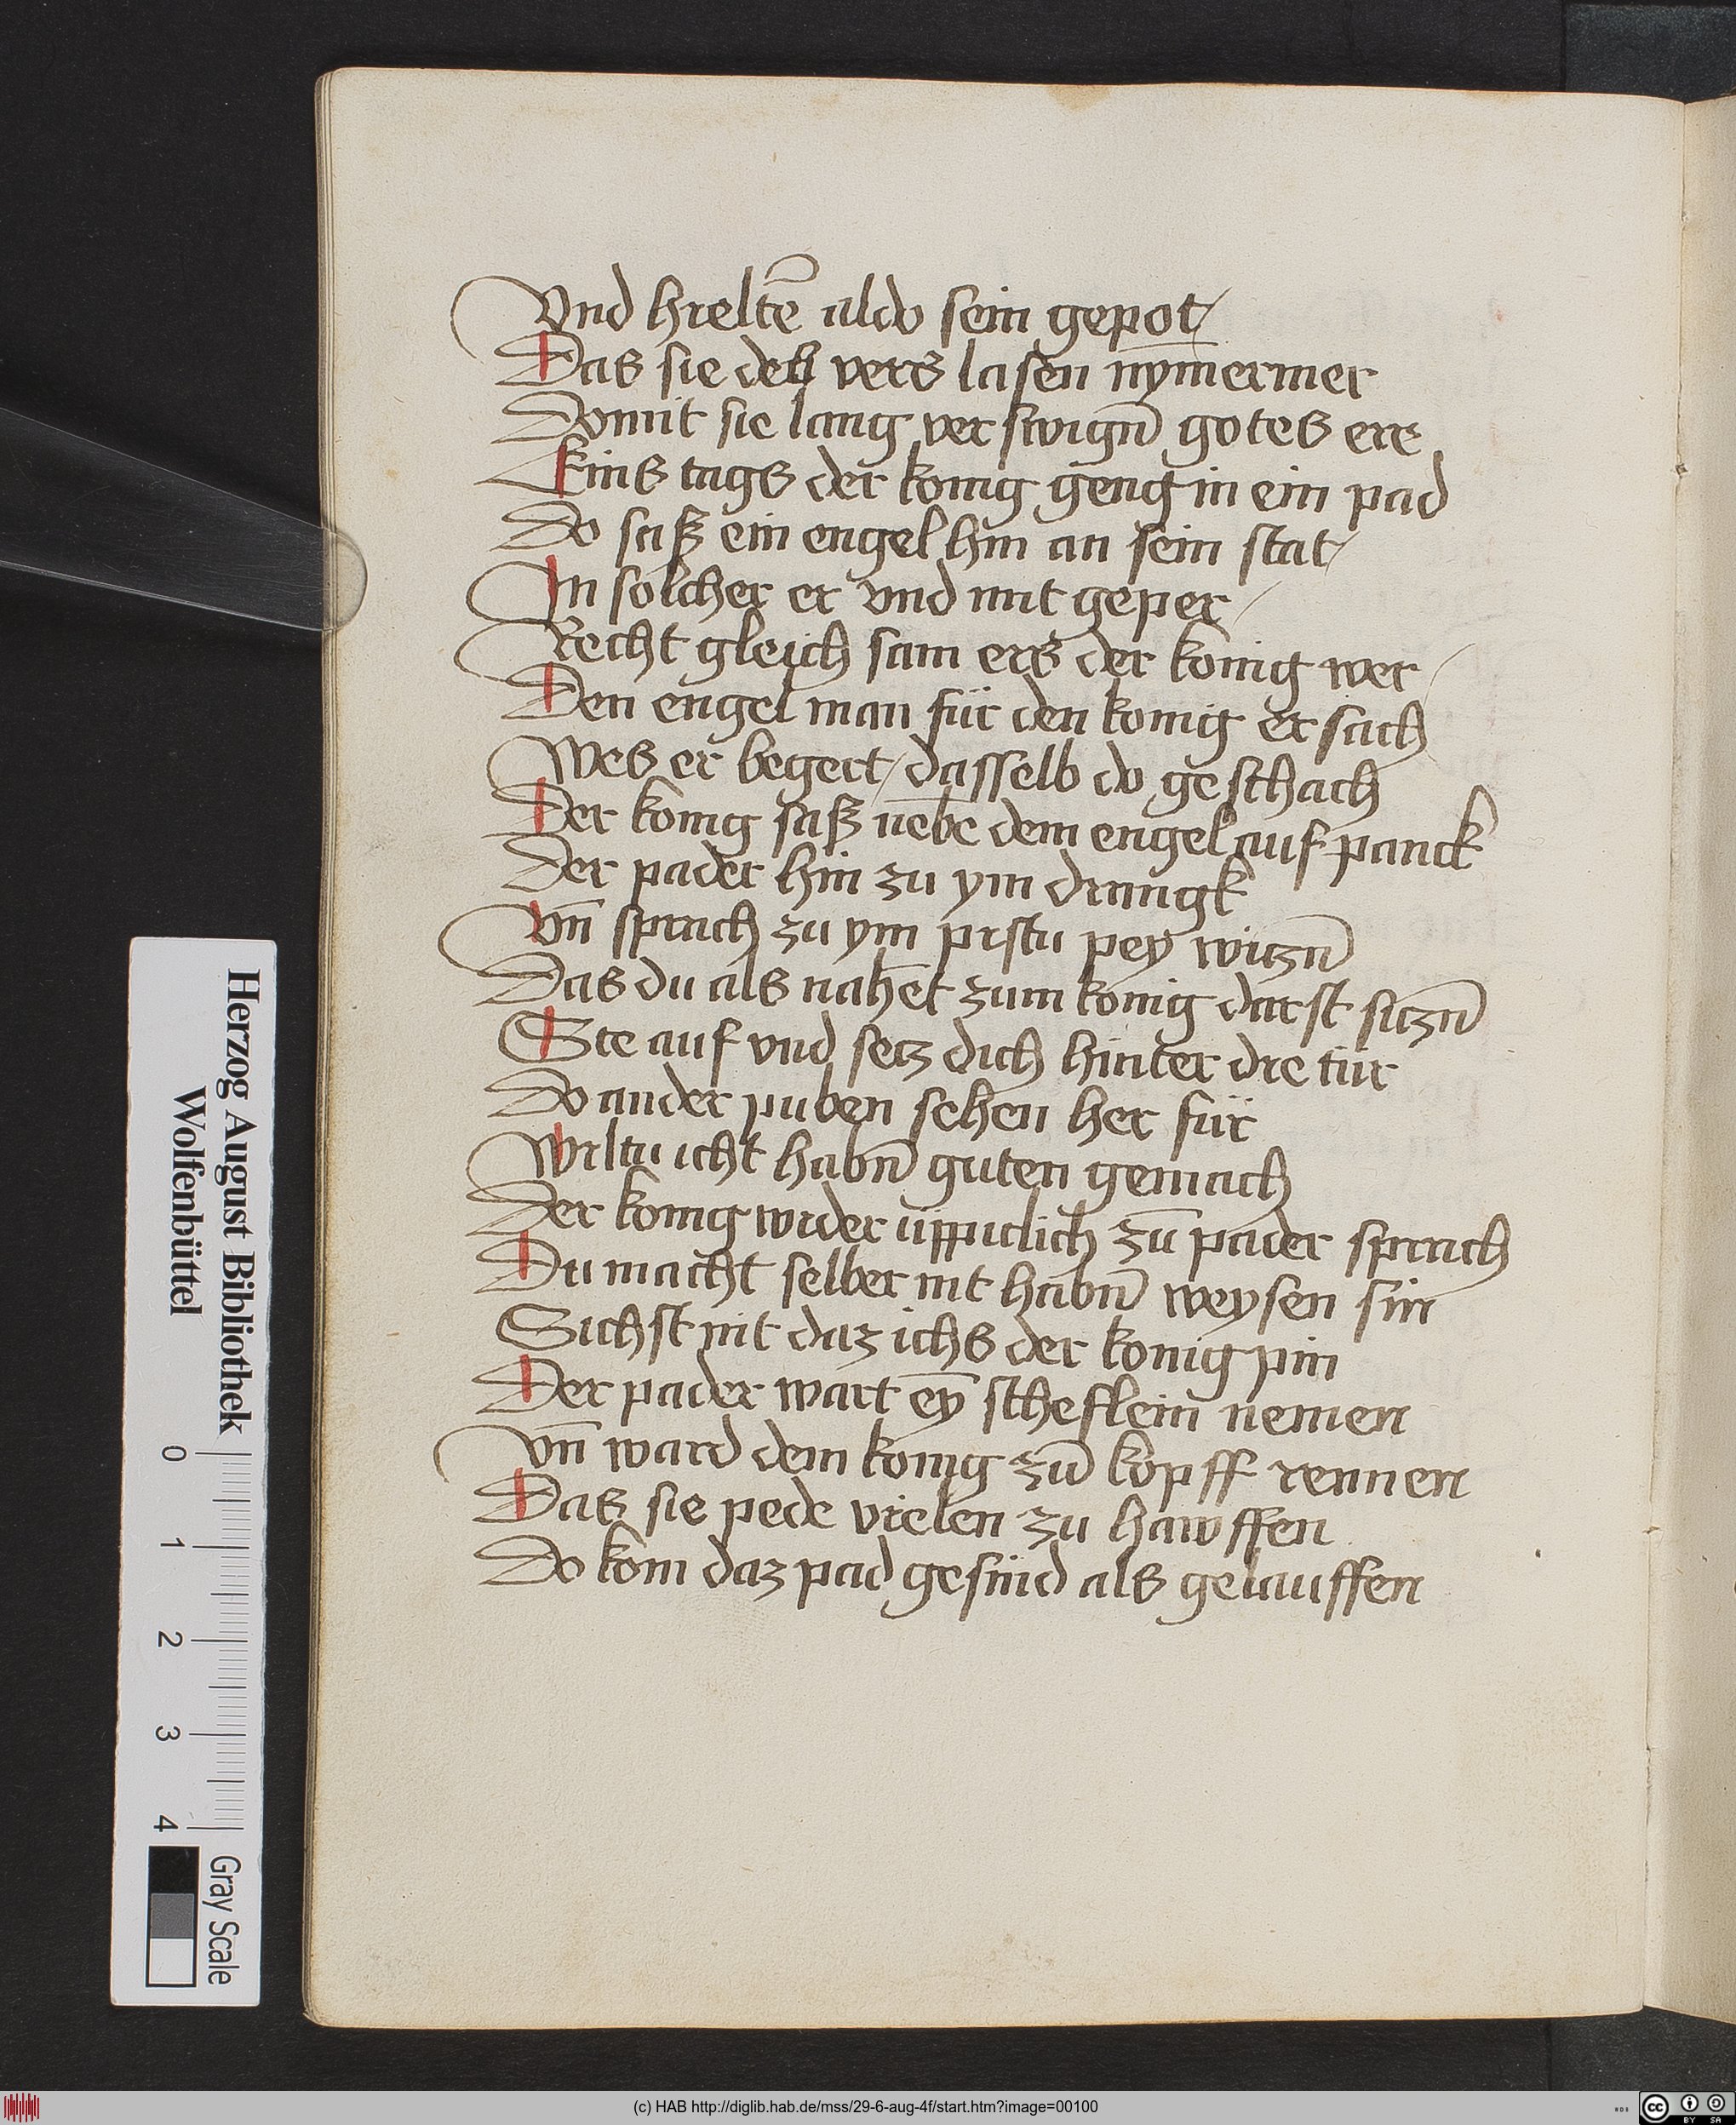 Vnd hielte͂ aldo sein gepot/
Das sie deß vers lasen nym̅ermer
Domit sie lang verswign̅ gotes ere
Eins tags der konig geng in ein pad
Do saß ein engel hin an sein stat/
In solcher er vnd mit geper/
Recht gleich sam ers der konig wer/
Den engel man für den konig ersach
Wes er begert/dasselb do geschach
Der konig saß nebe̅ dem engel auf panck
Der pader hin zu ym drangk
Vn̅ sprach zu ym pistu pey witzn̅
Das du als nahet zum konig darst sitzn̅
Ste auf vnd setz dich hinter die tür
Do ander puben sehen her für
Wiltu icht habn̅ guten gemach
Der konig wider üppiclich zu̅ pader sprach
Du macht selber nit habn̅ weysen sin
Sichst nit daz ichs der konig pin
Der pader wart ey̅ scheflein nemen
Vn̅ ward dem konig zu̅ kopff rennen
Das sie pede vielen zu hawffen
Do kom daz pad gesind als gelauffen
Herzog August Bibliothek
Wolfenbüttel
0 1 2 3 4
Gray Scale
(c) HAB http://diglib.hab.de/mss/29-6-aug-4f/start.htm?image=00100
cc BY SA